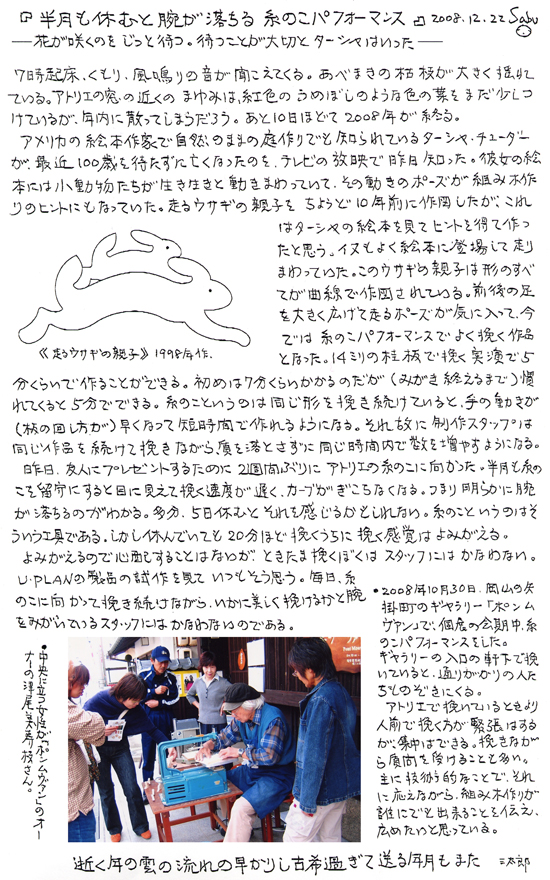 『半月も休むと腕が落ちる 糸のこパフォーマンス』 2008.12.22 Sabu
──花が咲くのを じっと待つ。待つことが大切と ターシャはいった──
7時起床、くもり、風鳴りの音が聞こえてくる。あべまきの枯枝が大きく揺れ
ている。アトリエの窓の近くの まゆみは、紅色の うめぼしのような色の葉を まだ少しつ
けているが、年内に散ってしまうだろう。あと10日ほどで 2008年が終る。
アメリカの絵本作家で自然のままの庭作りでも知られているターシャ・チューダー
が、最近 100歳を待たずに亡くなったのを、テレビの放映で昨日知った。彼女の絵
本には小動物たちが生き生きと動きまわっていて、その動きのポーズが組み木作
りのヒントにもなっていた。走るウサギの親子を ちょうど10年前に作図したが、これ
はターシャの絵本を見てヒントを得て作っ
たと思う。イヌもよく絵本に登場して走り
まわっていた。このウサギの親子は形のすべ
てが曲線で作図されている。前後の足
を大きく広げて走るポーズが気に入って、今
では 糸のこパフォーマンスで よく挽く作品
となった。14ミリの桂板で挽く実演で5
《走るウサギの親子》 1998年作.
分くらいで作ることができる。初めは7分くらいかかるのだが(みがき終えるまで)慣
れてくると5分でできる。糸のこというのは同じ形を挽き続けていると、手の動きが
(板の回し方が)早くなって短時間で作れるようになる。それ故に 制作スタッフは
同じ作品を続けて挽きながら、質を落とさずに同じ時間内で数を増やすようになる。
昨日、友人にプレゼントするために 2週間ぶりに アトリエの糸のこに向かった。半月も糸の
こを留守にすると目に見えて挽く速度が遅く、カーブがぎこちなくなる。つまり明らかに腕
が落ちるのがわかる。多分、5日休むと それを感じるかもしれない。糸のこというのはそ
ういう工具である。しかし休んでいても 20分ほど 挽くうちに 挽く感覚は よみがえる。
よみがえるので心配することはないが ときたま挽くぼくは スタッフには かなわない。
U-PLANの製品の試作を見て いつもそう思う。毎日、糸
のこに向かって挽き続けながら、いかに美しく挽けるかと腕
をみがいているスタッフには かなわないのである。
・2008年10月30日、岡山の矢
掛町のギャラリー「ポンム
ヴァン」で、個展の会期中、糸
のこパフォーマンスをした。
ギャラリーの入口の軒下で挽
いていると、通りかかりの人た
ちものぞきにくる。
アトリエで挽いているときより
人前で挽く方が 緊張はする
が、集中はできる。挽きなが
ら質問を受けることも多い。
主に技術的なことで、それ
に応えながら、組み木作りが
誰にでも出来ることを伝え、
広めたいと思っている。
・中央に立つ女性が「ポンムヴァン」のオー
ナーの津尾美寿枝さん。
逝く年の雲の流れの早かりし古希過ぎて送る年月もまた 三太郎